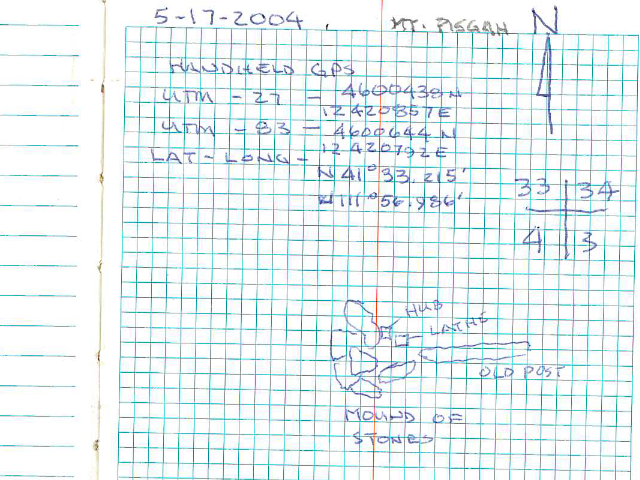 5-17-2004 . MT. PISGAH N
HANDHELD GPS
UTM - 27 - 4600439N
12420857E
UTM - 83 - 4600644N
12420792E
LAT-LONG-
N41°33.215'
W111°56.986'
33 34
4 3
HUB
LATHE
OLD POST
MOUND OF
STONES